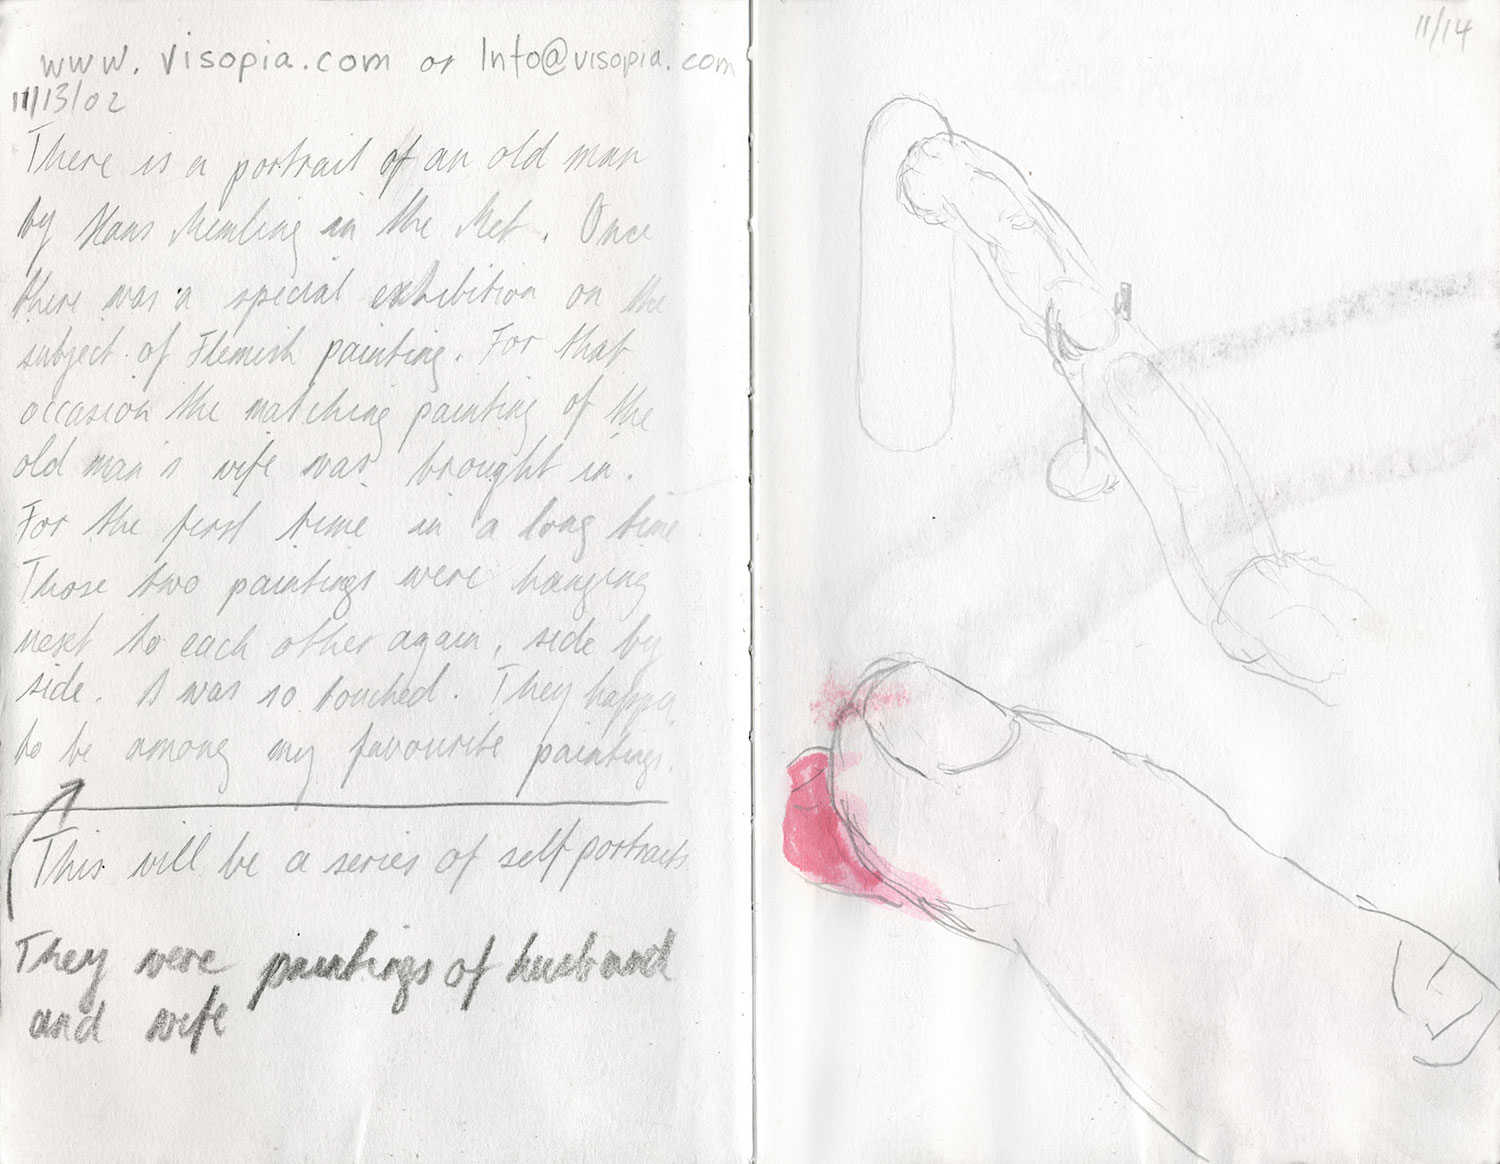 www. visopia.com or Info@visopia.com
11/13/02
There is a portrait of an old man
by Hans Memling in the Met. Once
there was a special exhibition on the
subject of Flemish painting. For that
occasion the matching painting of the
old man's wife was brought in.
For the first time in a long time
Those two paintings were hanging
next to each other again, side by
side. I was so touched. They happen
to be among my favourite paintings.
This will be a series of self portraits
They were paintings of husband
and wife
11/14